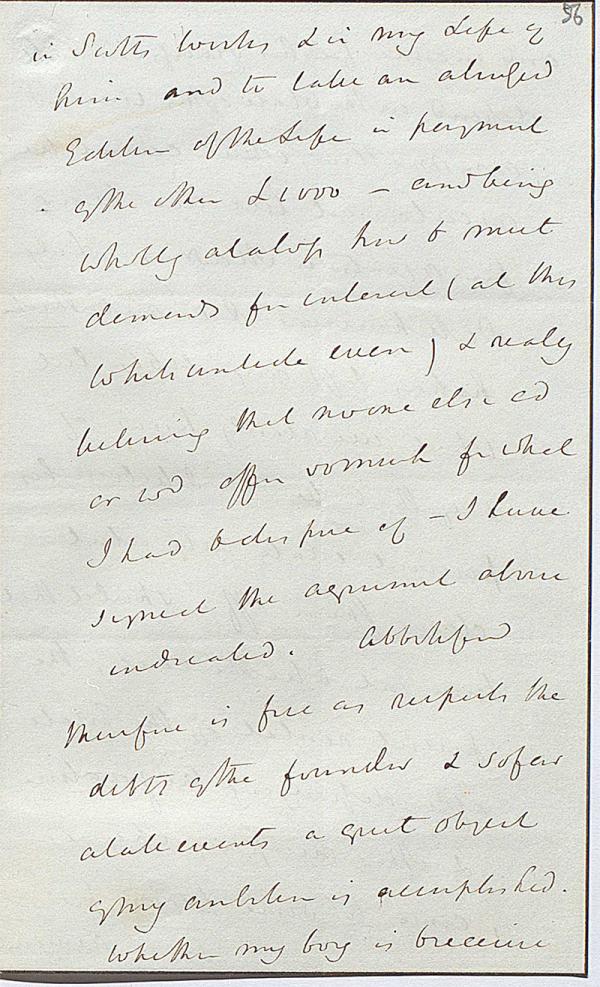 56
in Scotts works & in my Life of
him and to take an abridged
Edition of the Life in payment
of the other £1000 – and being
wholly at a loss how to meet
demands for interest (at this
Whitsuntide even) & really
believing that no one else cd
or wd offer so much for what
I had to dispose of – I have
signed the agreement above
indicated. Abbotsford
therefore is free as respects the
debts of the founder & so far
at all events a great object
of my ambition is accomplished.
Whether my boy is to receive